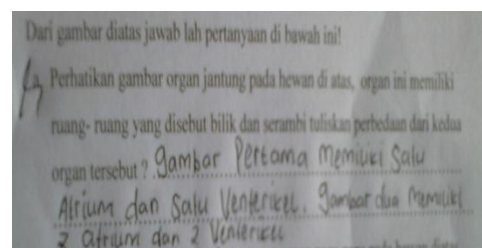 Dari gambar diatas jawab lah pertanyaan di bawah ini!
Perhatikan gambar organ jantung pada hewan di atas, organ ini memiliki
ruang- ruang yang disebut bilik dan serambi tuliskan perbedaan dari kedua
organ tersebut ? gambar Pertama memiliki Satu
Atrium dan Satu Ventrikel. gambar dua memiliki
2 atrium dan 2 Ventrikel